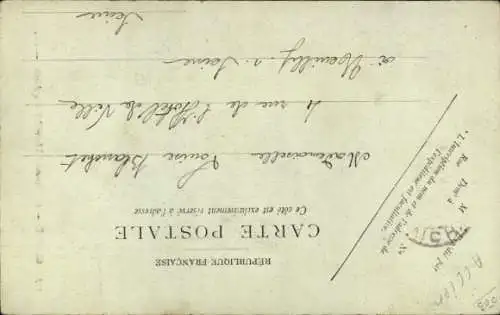 RÉPUBLIQUE FRANÇAISE
CARTE POSTALE
Ce côté est exclusivement réservé à l'adresse
Mademoiselle Louise Blanchet
4 rue de l'Hôtel de Ville
à Neuilly s. Seine
Seine
M
Demt à
Rue
N°
L'inscription du nom et de l'adresse de
l'expéditeur est facultative.